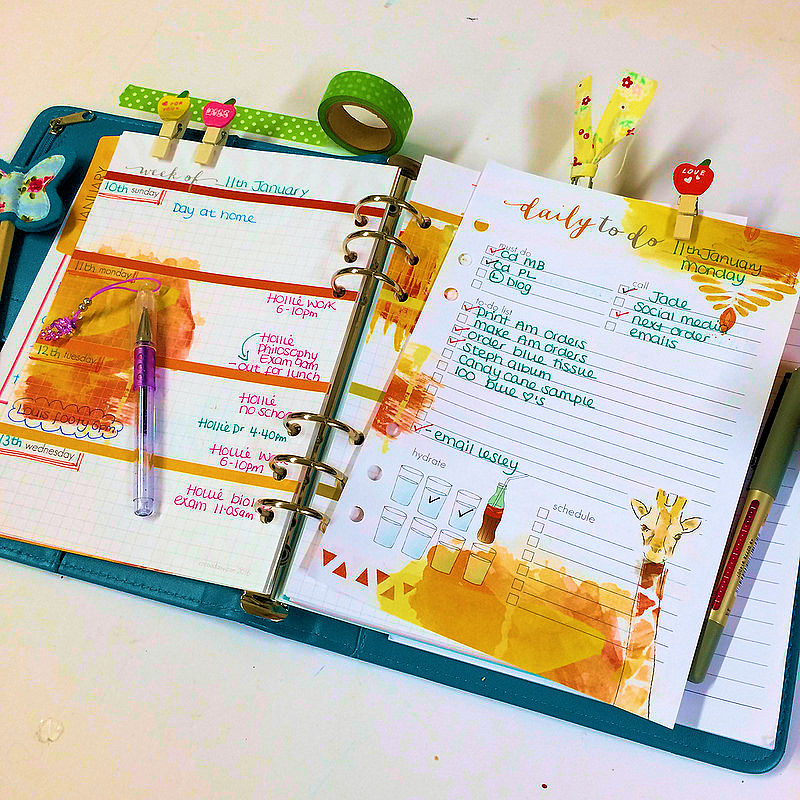 FOR YOU
week of 11th January
JANUARY
10th sunday
Day at home
11th monday
Hollie Work
6-10pm
Hollie
Philosophy
Exam 9am
- out for lunch
12th tuesday
Hollie
no school
Louis footy 6pm
Hollie Dr 4.40pm
13th wednesday
Hollie
6-10pm
Hollie
exam 11.05am
LOVE
daily to do
11th January
monday
must do
cd MB
cd PL
blog
call
Jade
social media
next order
emails
to-do list
print Am orders
make Am orders
order blue tissue
steph album
candy cane sample
100 blue ♡'s
- email lesley
hydrate
schedule